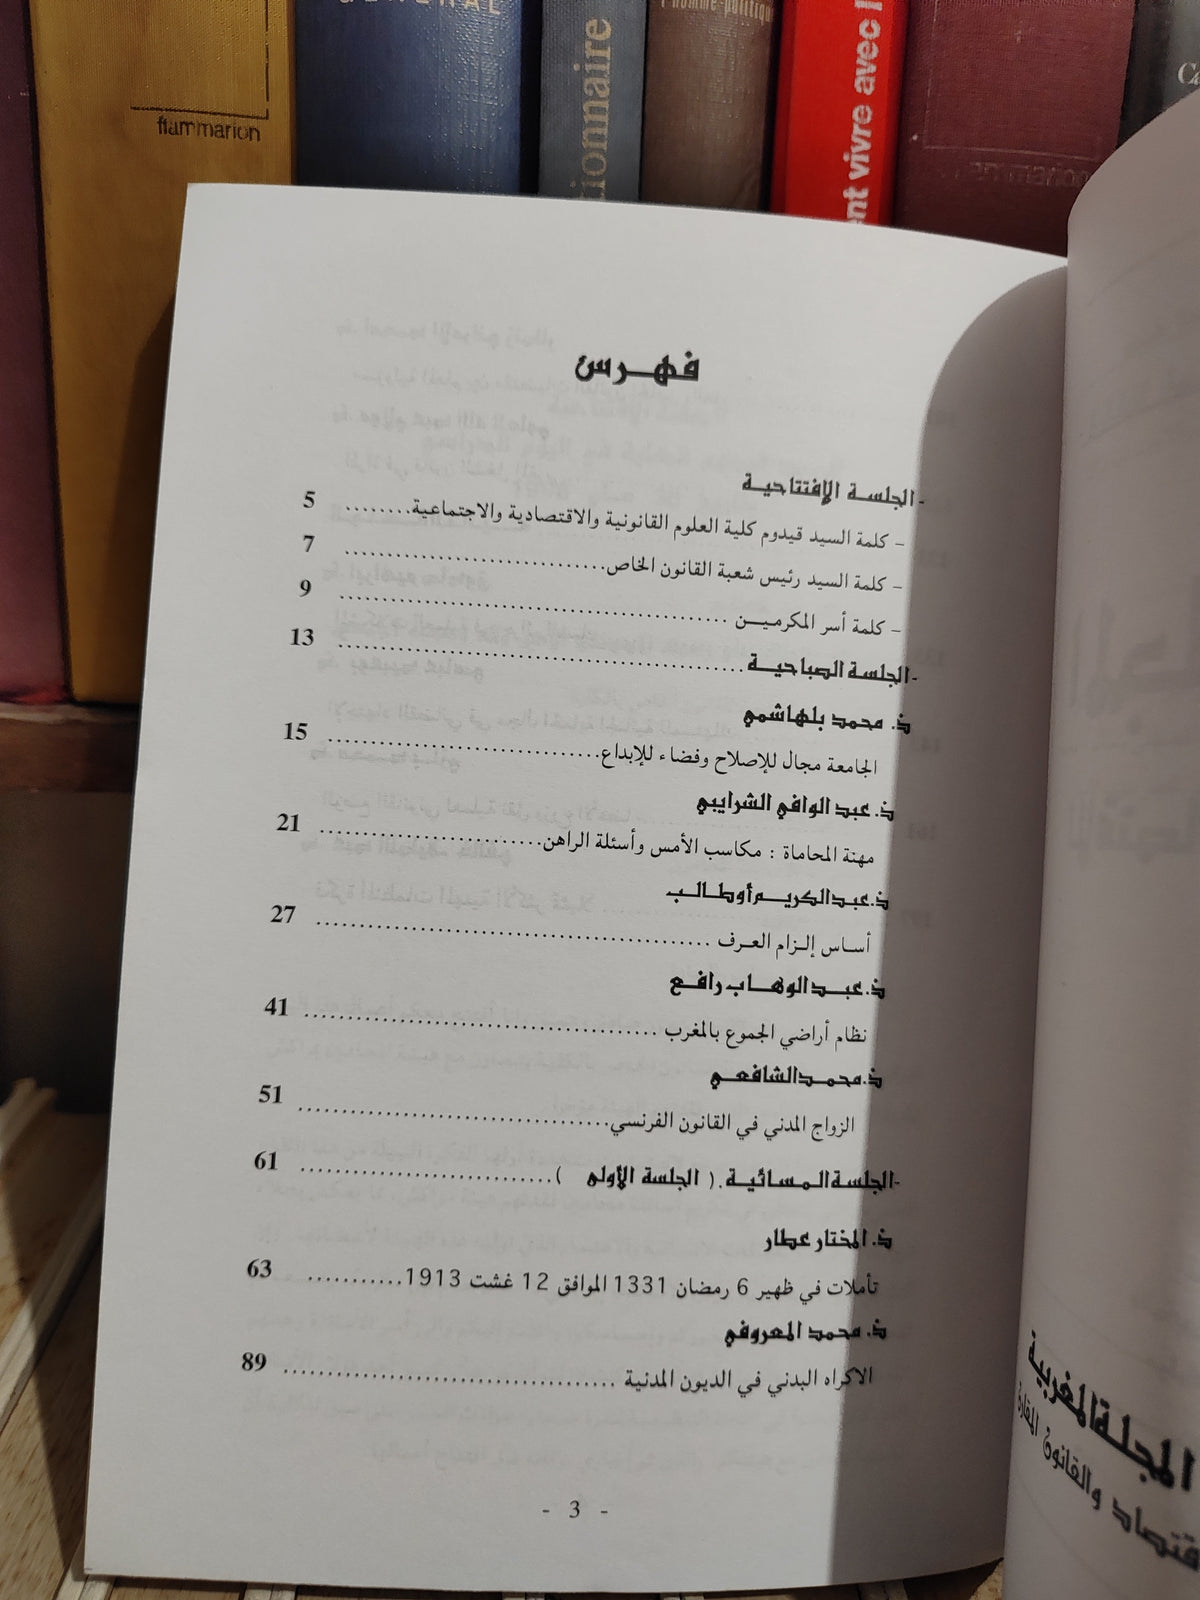 GENERAL
flammarion
tionnaire
l'homme politique
ent vivre avec l
flammarion
فهرس
-الجلسة الإفتتاحية
– كلمة السيد قيدوم كلية العلوم القانونية والاقتصادية والاجتماعية........ 5
– كلمة السيد رئيس شعبة القانون الخاص................................ 7
– كلمة أسر المكرمين ................................ 9
-الجلسة الصباحية................................ 13
ذ. محمد بلهاشمي
الجامعة مجال للإصلاح وفضاء للإبداع................................ 15
ذ. عبد الوافي الشرايبي
مهنة المحاماة : مكاسب الأمس وأسئلة الراهن........................ 21
ذ.عبدالكريم أوطالب
أساس إلزام العرف ................................ 27
ذ.عبد الوهاب رافع
نظام أراضي الجموع بالمغرب ................................ 41
ذ.محمد الشافعي
الزواج المدني في القانون الفرنسي................................ 51
-الجلسة المسائية.( الجلسة الأولى )........................ 61
ذ. المختار عطار
تأملات في ظهير 6 رمضان 1331 الموافق 12 غشت 1913........... 63
ذ. محمد المعروفي
الاكراه البدني في الديون المدنية ................................ 89
- 3 -
المجلة المغربية
قتصاد والقانون المقارن